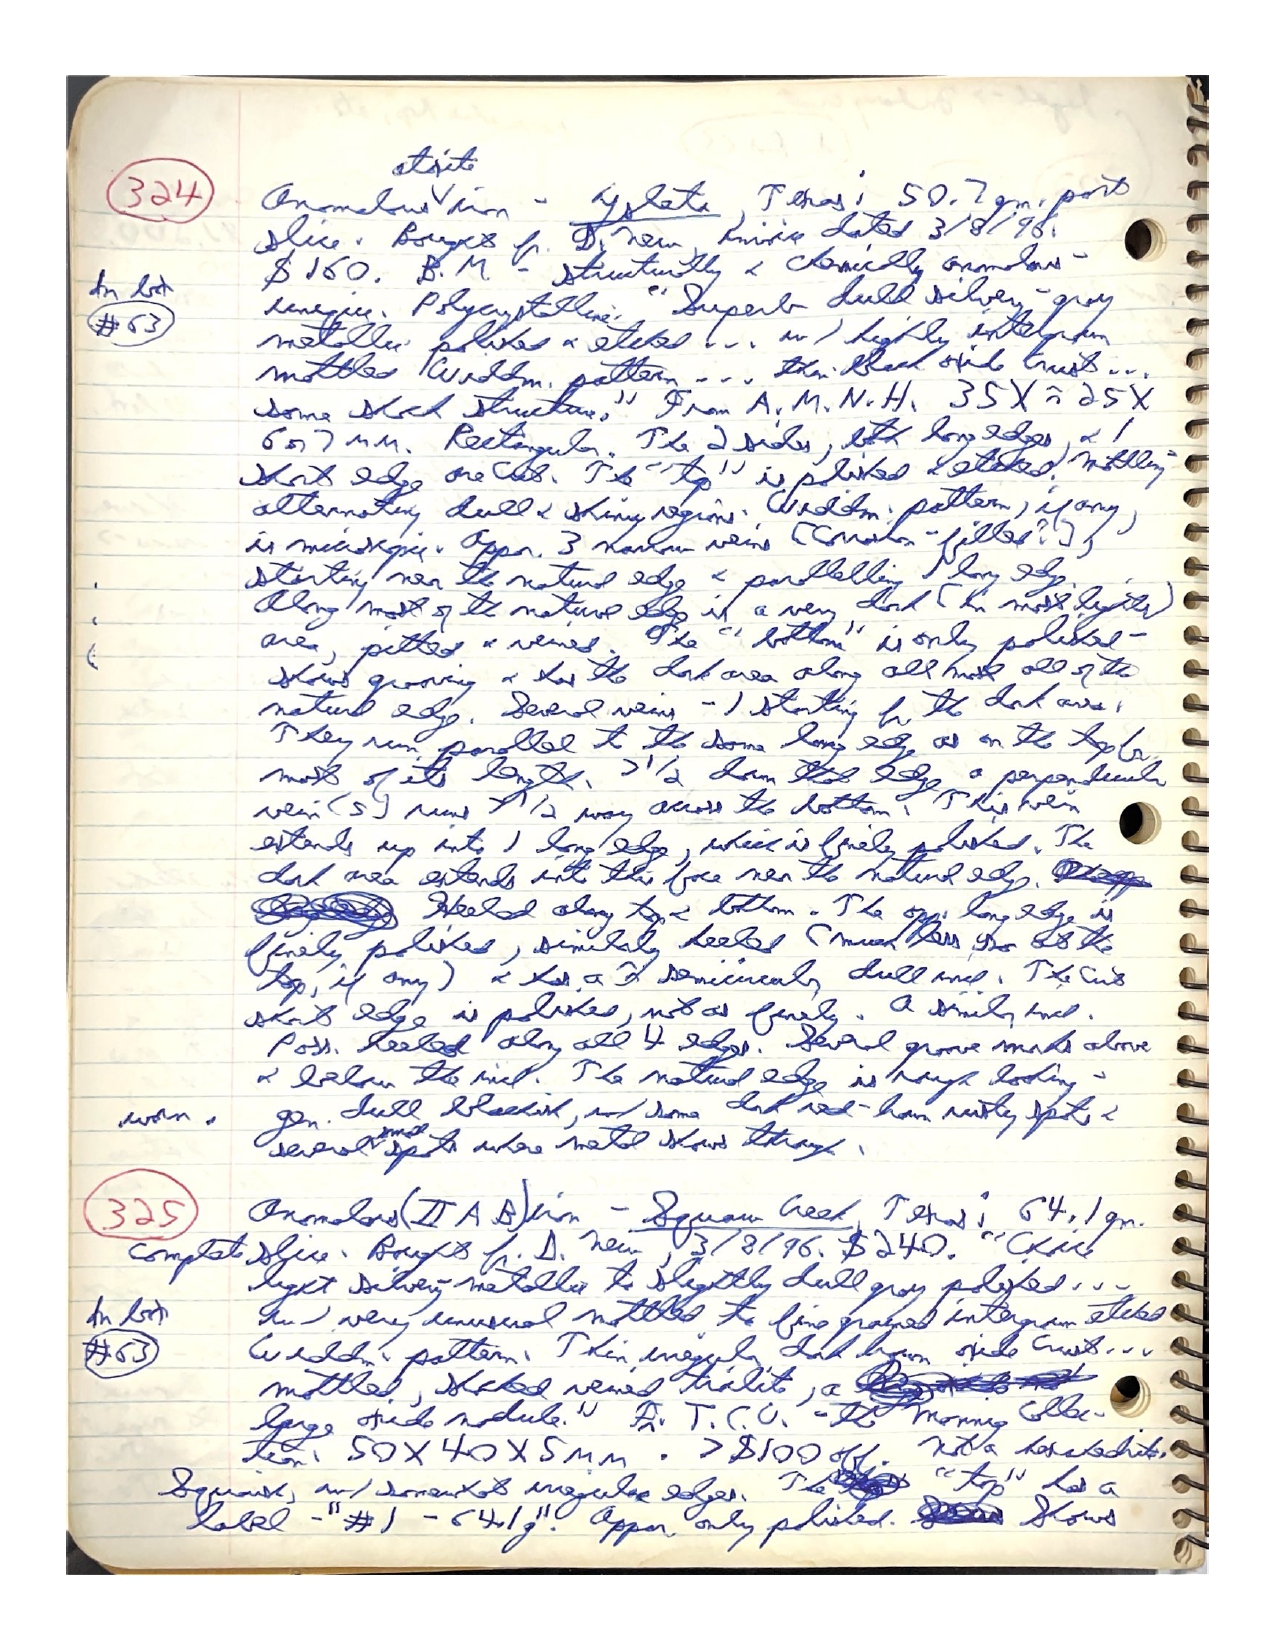 324
atxite
Anomalous iron - Ysleta, Texas; 50.7 gm. part
slice. Bought fr. D. New, invoice dated 3/8/96.
$160. B.M. - structurally & chemically anomalous -
In box
#63
unique. Polycrystalline. "Superb dull silvery-gray
metallic polished & etched ... w/ highly intergrown
mottled Widdm. pattern ... thin black oxide crust ...
some shock structure." From A.M.N.H. 35 X ≈ 25 X
6 or 7 mm. Rectangular. The 2 sides, both long edges, & 1
short edge are cut. The "top" is polished & etched, mottling -
alternating dull & shiny regions. Widdm. pattern, if any,
is microscopic. Appar. 3 narrow veins (corrosion-filled?),
starting near the natural edge & parallelling 1 long edge.
Along most of the natural edge is a very dark (in most lights)
area, pitted & veined. The "bottom" is only polished -
shows grooving & has the dark area along all most all of the
natural edge. Several veins - 1 starting fr. the dark area.
They run parallel to the same long edge as on the top for
most of its length. > 1/2 down that edge a perpendicular
vein(s) runs > 1/2 way across the bottom. This vein
extends up into 1 long edge, which is finely polished. The
dark area extends into this face near the natural edge.
Beveled along top & bottom. The opp. long edge is
finely polished, similarly beveled (much less so at the
top, if any) & has a semicircular dull incl. The cut
short edge is polished, not as finely. A similar incl.
Poss. beveled along all 4 edges. Several groove marks above
& below the incl. The natural edge is rough looking -
worn.
gen. dull blackish, w/ some dark red-brown rusty spots &
several small spots where metal shows through.
325
Anomalous (II A B) iron - Squaw Creek, Texas; 64.1 gm.
complete slice. Bought fr. D. New, 3/8/96. $240. "Choice
light silvery metallic to slightly dull gray polished ...
In box
#63
w/ very unusual mottled to fine grained intergrown etched
Widdm. pattern. Thin irregular dark brown oxide crust ...
mottled, shocked veined troilite, a
large oxide nodule." Fr. T.C.U. - the Monnig Collec-
tion. 50 X 40 X 5 mm. > $100 off. Not a hexahedrite.
Squarish, w/ somewhat irregular edges. The "top" has a
label - "#1 - 64.1g". Appar. only polished. Shows